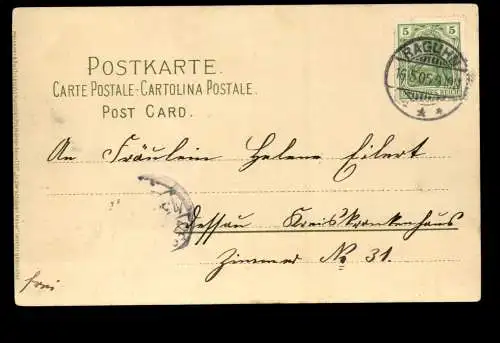 POSTKARTE.
CARTE POSTALE-CARTOLINA POSTALE.
POST CARD.
5 5
RAGUHN
16.5.05.
An Fräulein Helene Eilert
Dessau Kreiskrankenhaus
Zimmer No 31.
frei